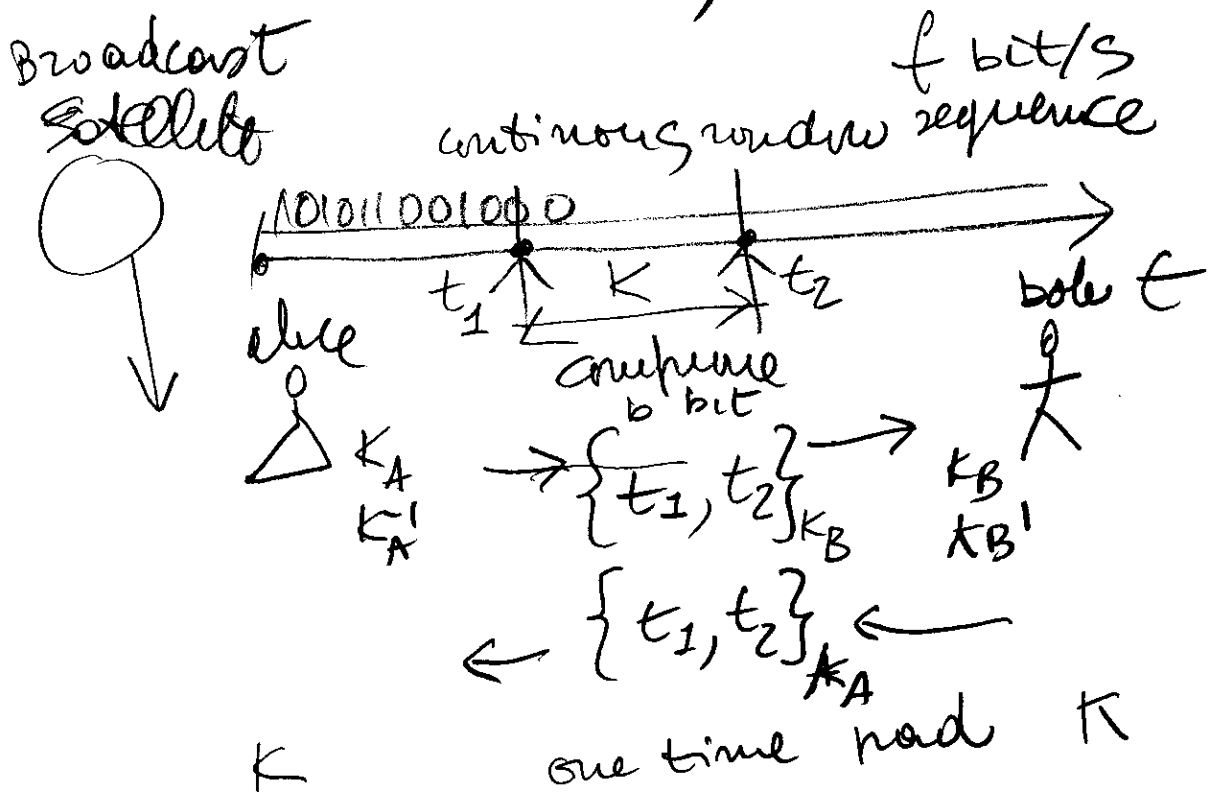 Broadcast
Satellite
f bit/s
continous random sequence
101011001000
t1 K t2
alice
bob t
b bit
KA
KA'
{t1, t2}KB
KB
KB'
{t1, t2}KA
K one time pad K